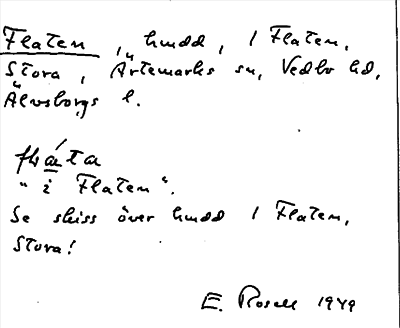 Flaten, hmdd, 1 Flaten,
Stora, Ärtemarks sn, Vedbo hd,
Älvsborgs l.
"i Flaten".
Se skiss över hmdd 1 Flaten,
Stora!
E. Rosell 1949